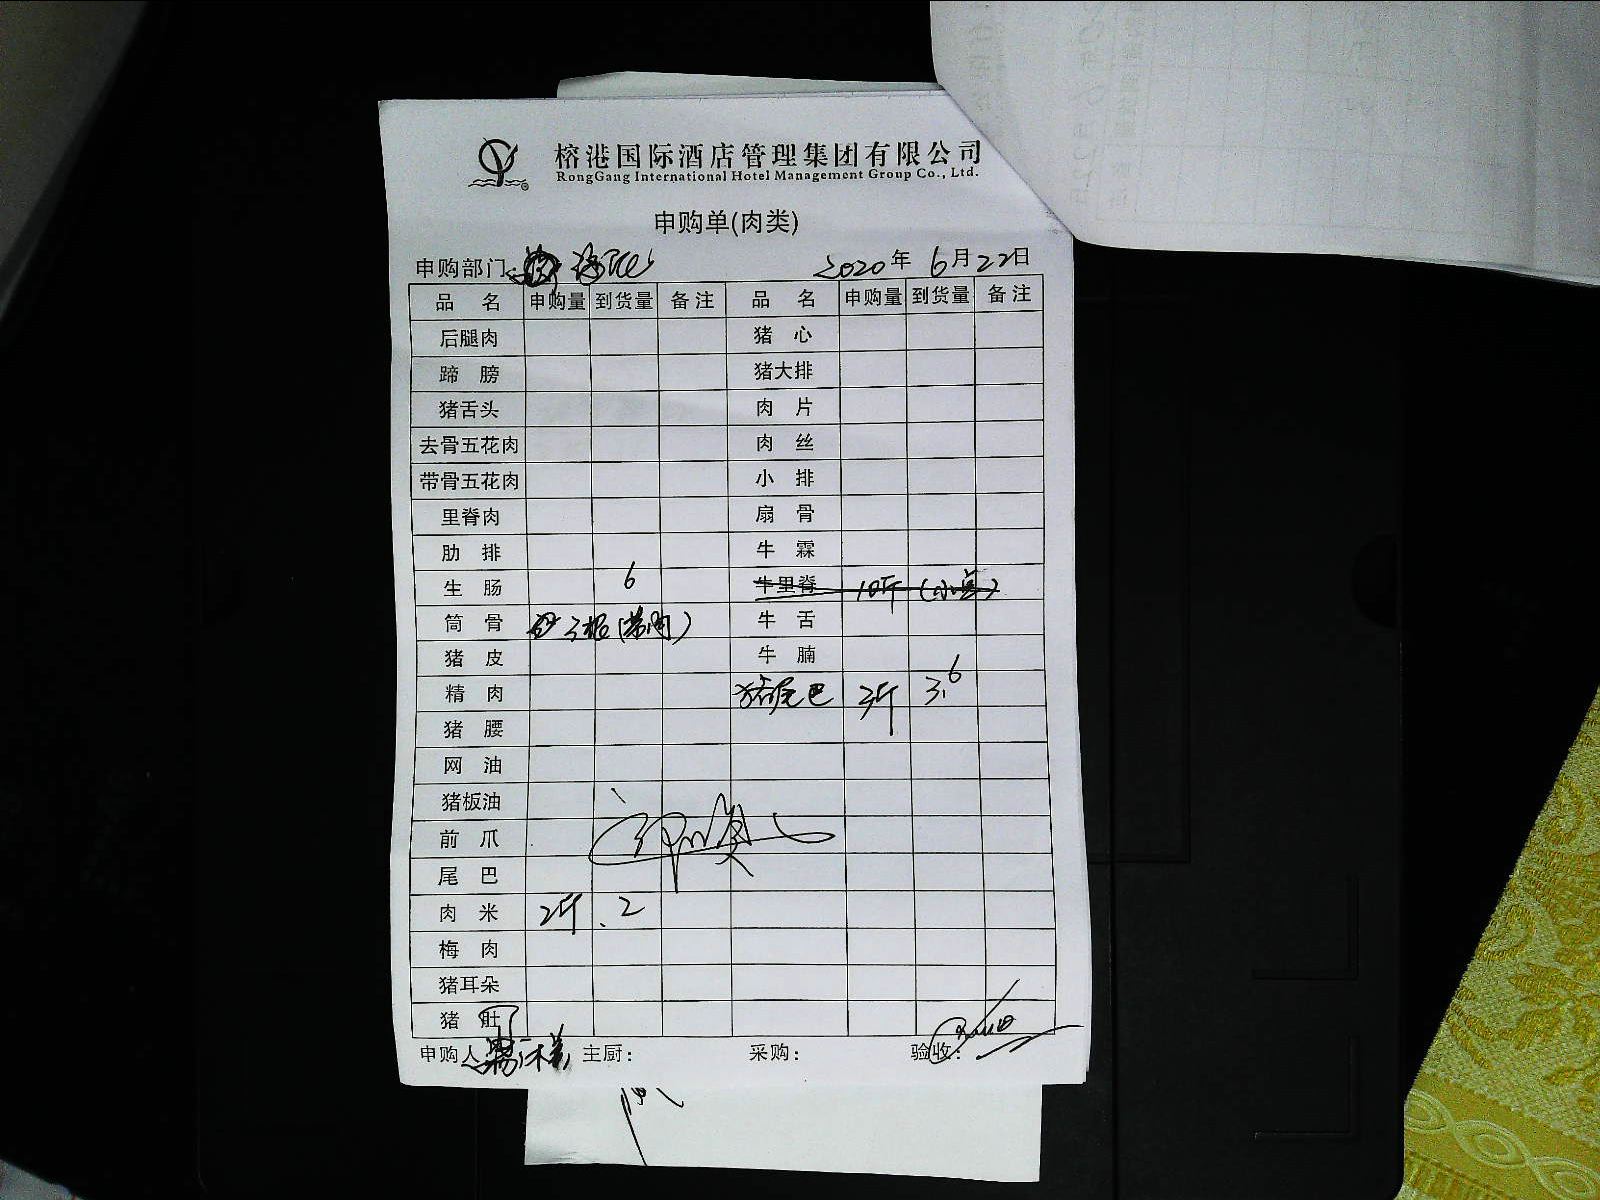 榕港国际酒店管理集团有限公司
RongGang International Hotel Management Group Co., Ltd.
申购单(肉类)
申购部门 2020年6月22日
品名 申购量 到货量 备注 品名 申购量 到货量 备注
后腿肉 猪心
蹄膀 猪大排
猪舌头 肉片
去骨五花肉 肉丝
带骨五花肉 小排
里脊肉 扇骨
肋排 牛霖
生肠 6 牛里脊 10斤
筒骨 3根(带肉) 牛舌
猪皮 牛腩
精肉 猪尾巴 3斤 3.6
猪腰
网油
猪板油
前爪
尾巴
肉米 2斤 2
梅肉
猪耳朵
猪肚
申购人 主厨: 采购: 验收: